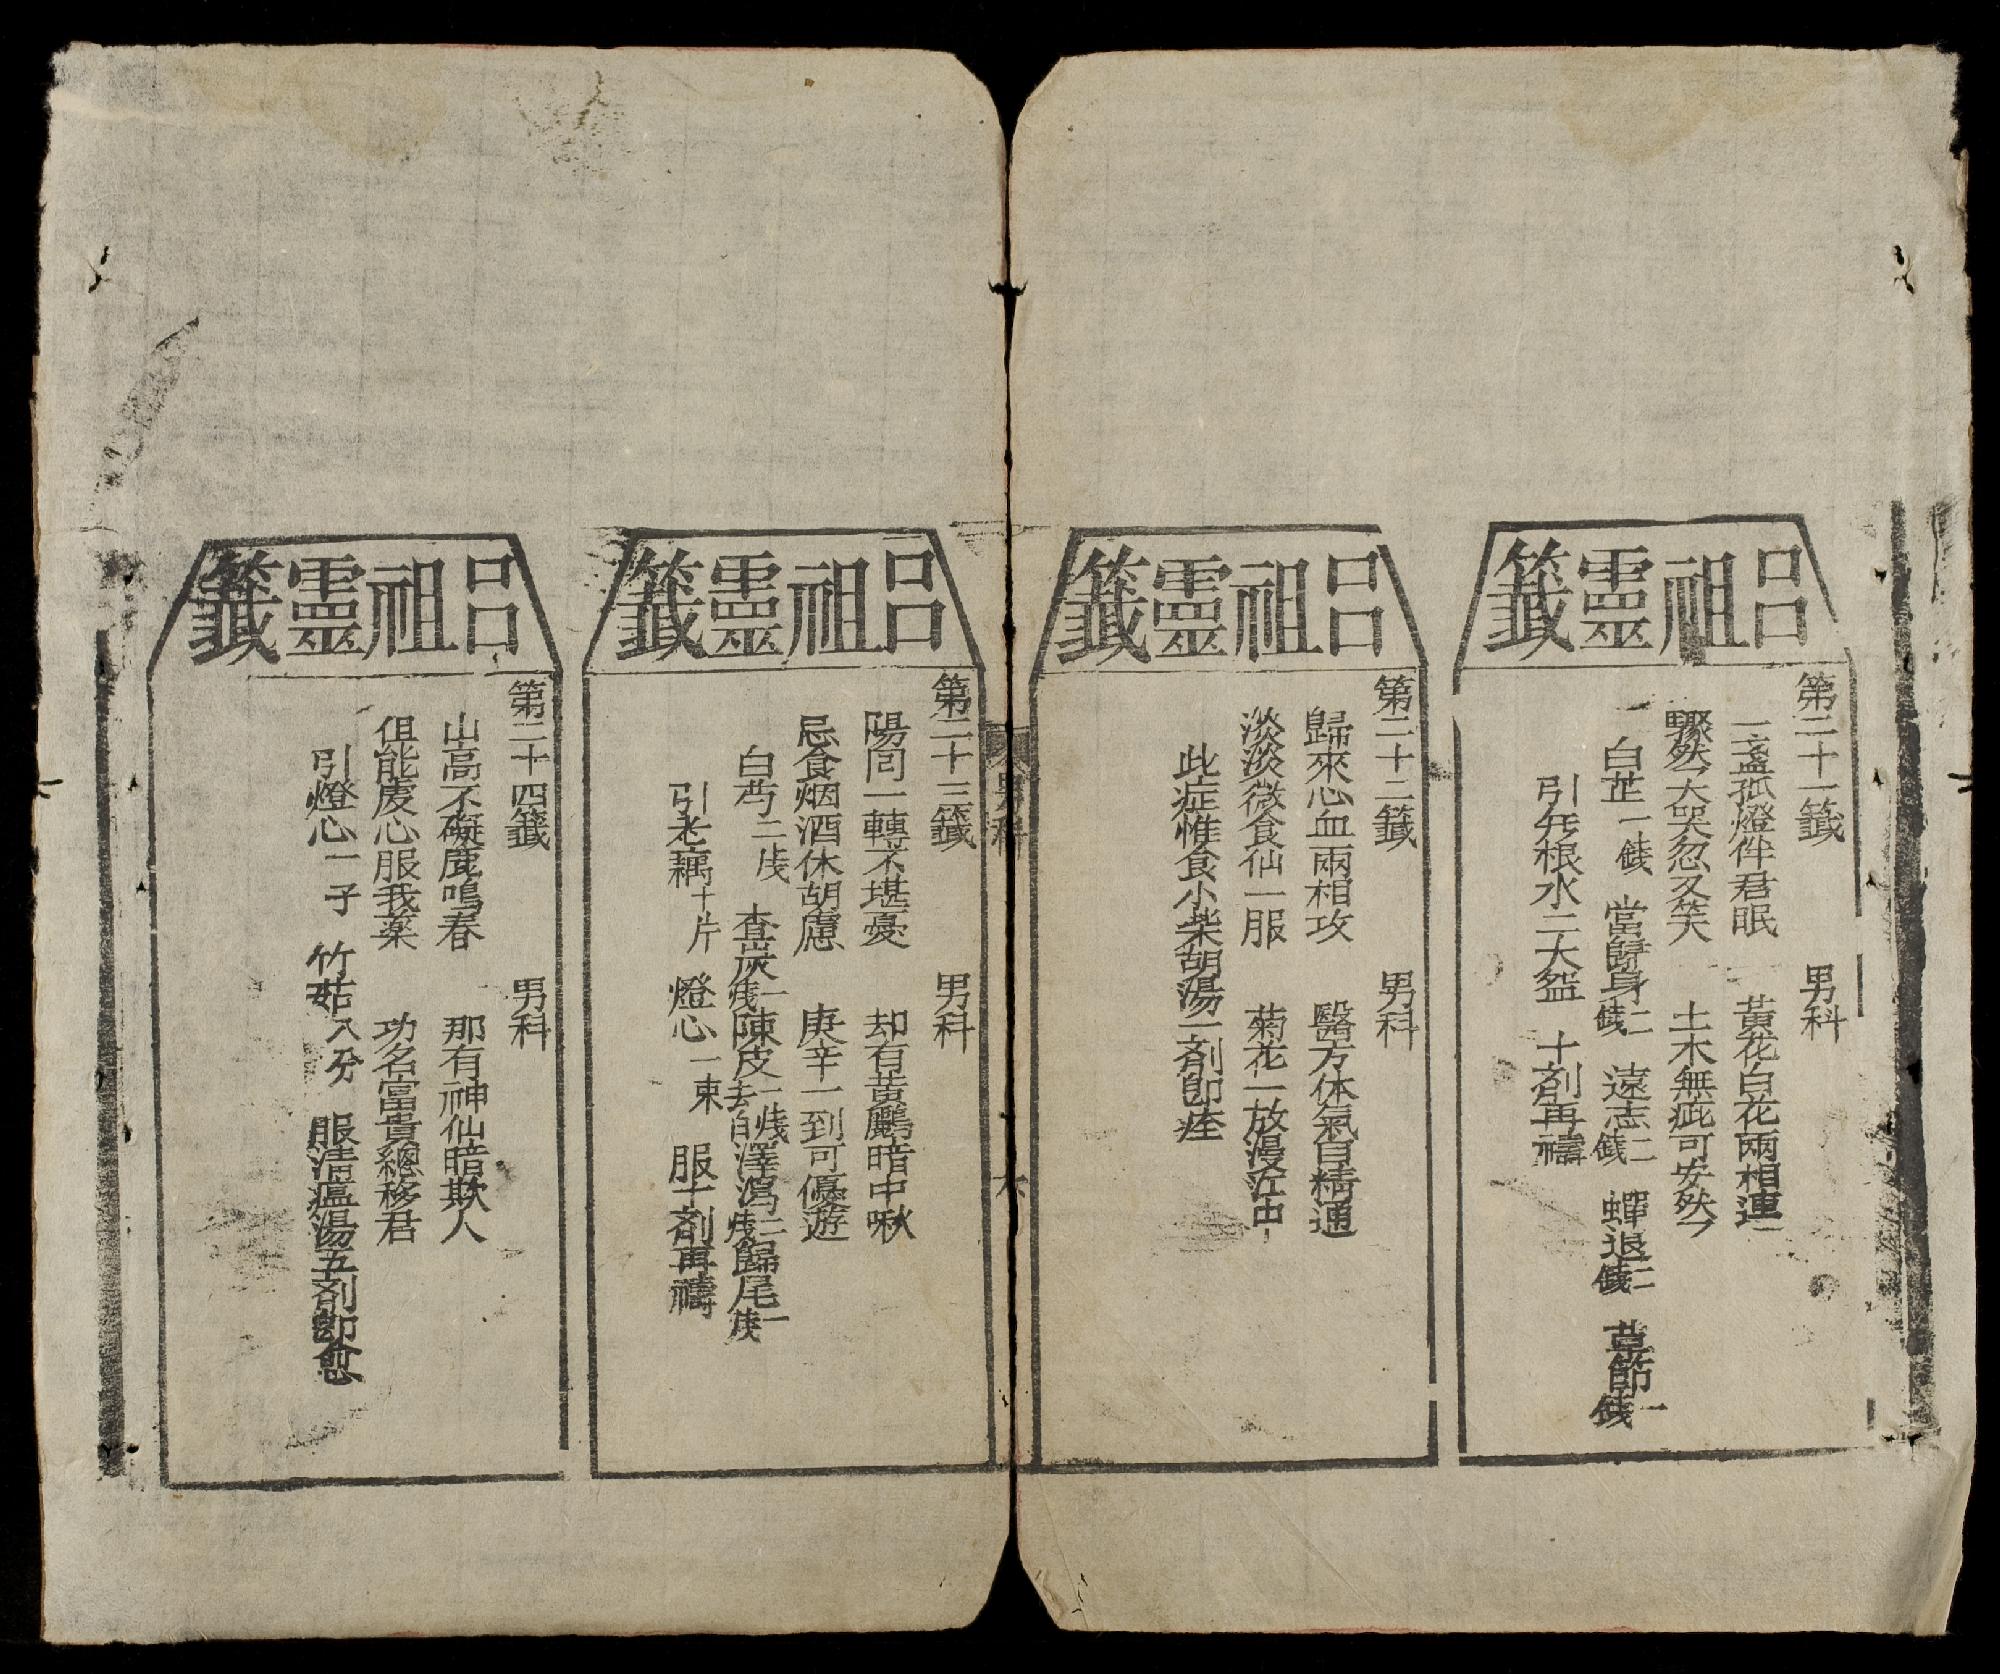 呂祖靈籤
第二十一籤　男科
三盞孤燈伴君眠　黃花白花兩相連
驟然大哭忽又笑　土木無疵可安然
白芷一錢　當歸身二錢　遠志二錢　蟬退二錢　草節一錢
引無根水二大盌　十劑再禱
呂祖靈籤
第二十二籤　男科
歸來心血兩相攻　醫方体氣自精通
淡淡微食仙一服　菊花一放漫江中
此症惟食小柴胡湯一劑卽痊
男科
六
呂祖靈籤
第二十三籤　男科
陽回一轉不堪憂　却有黃鸝暗中啾
忌食烟酒休胡慮　庚辛一到可優遊
白芍二戋　查炭一戋　陳皮一戋去白　澤瀉二戋　歸尾一戋
引老藕十片　燈心一束　服十劑再禱
呂祖靈籤
第二十四籤　男科
山高不礙鹿鳴春　那有神仙暗欺人
但能虔心服我藥　功名富貴總移君
引燈心一子　竹茹八分　服清瘟湯五劑卽愈